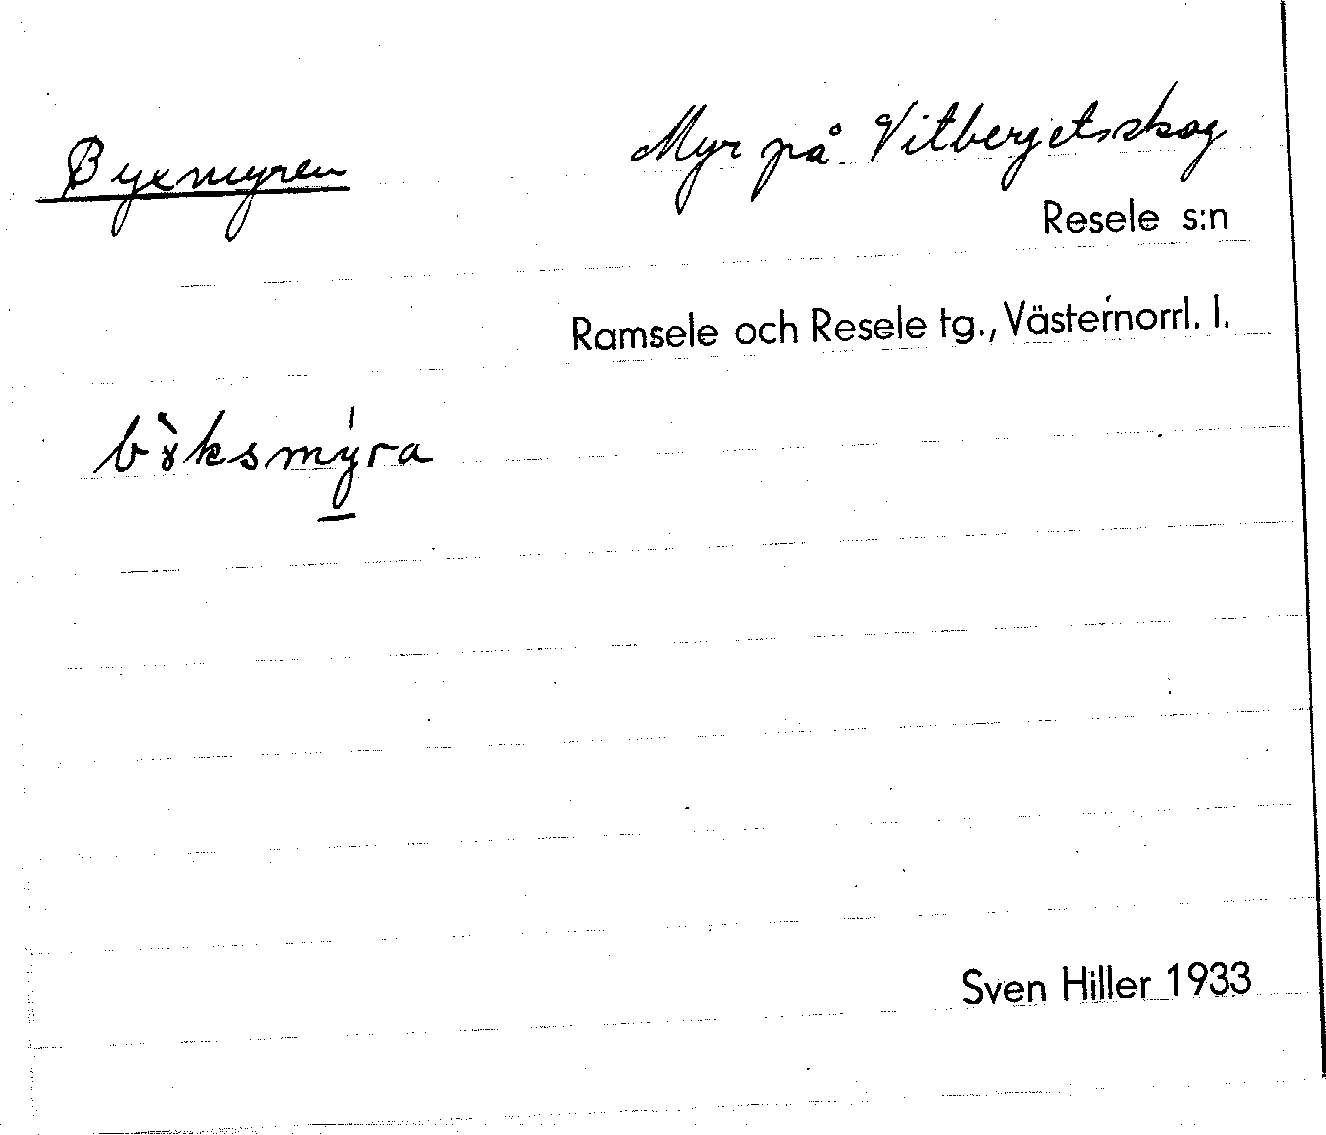 Byxmyren
Myr på Vitbergetsskog
Resele s:n
Ramsele och Resele tg., Västernorrl. l.
bø̀ksmýra
Sven Hiller 1933